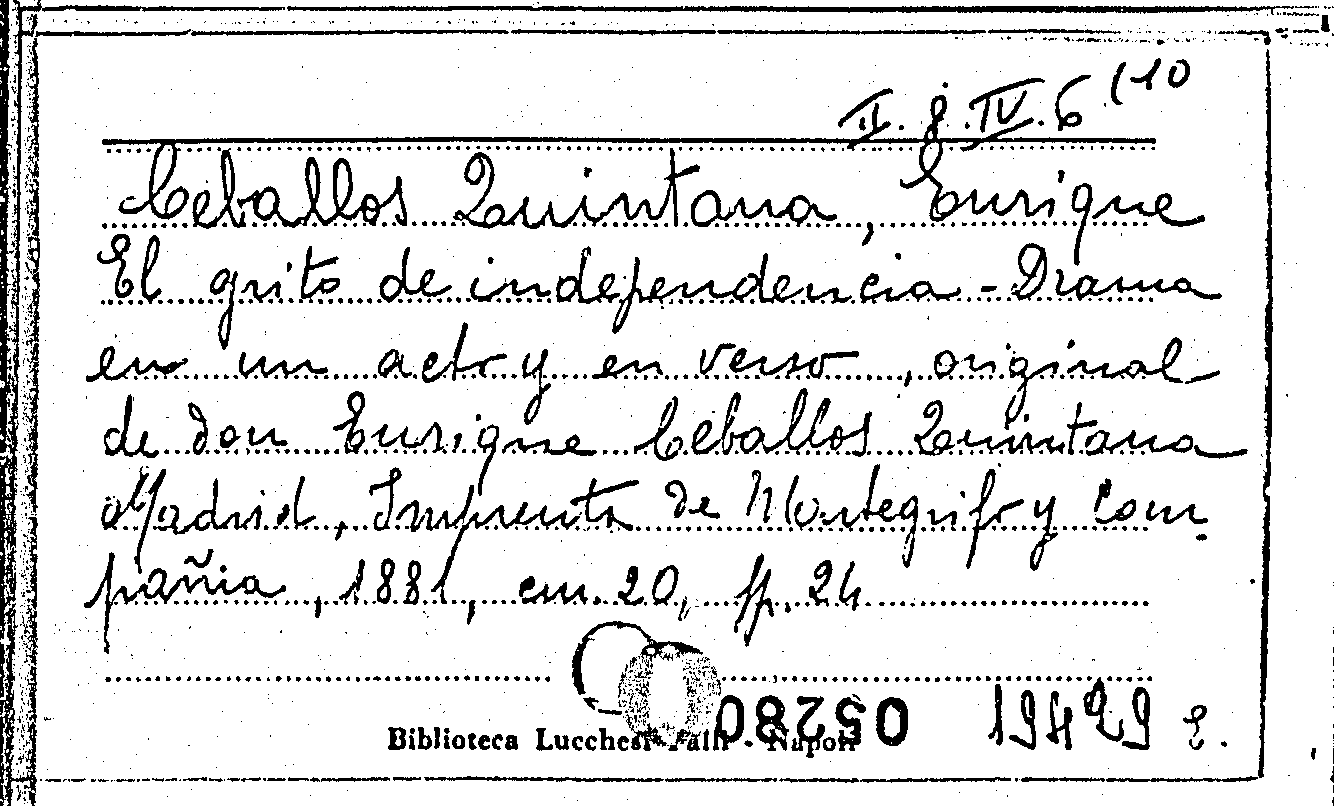 II. 8. IV. 6 (10
Ceballos Quintana, Enrique
El grito de independencia - Drama
en un acto y en verso, original
de don Enrique Ceballos Quintana
Madrid, Imprenta de Montegrifo y Com
pañia, 1881, cm. 20, pp. 24
05280 19429 E.
Biblioteca Lucchesi Palli - Napoli